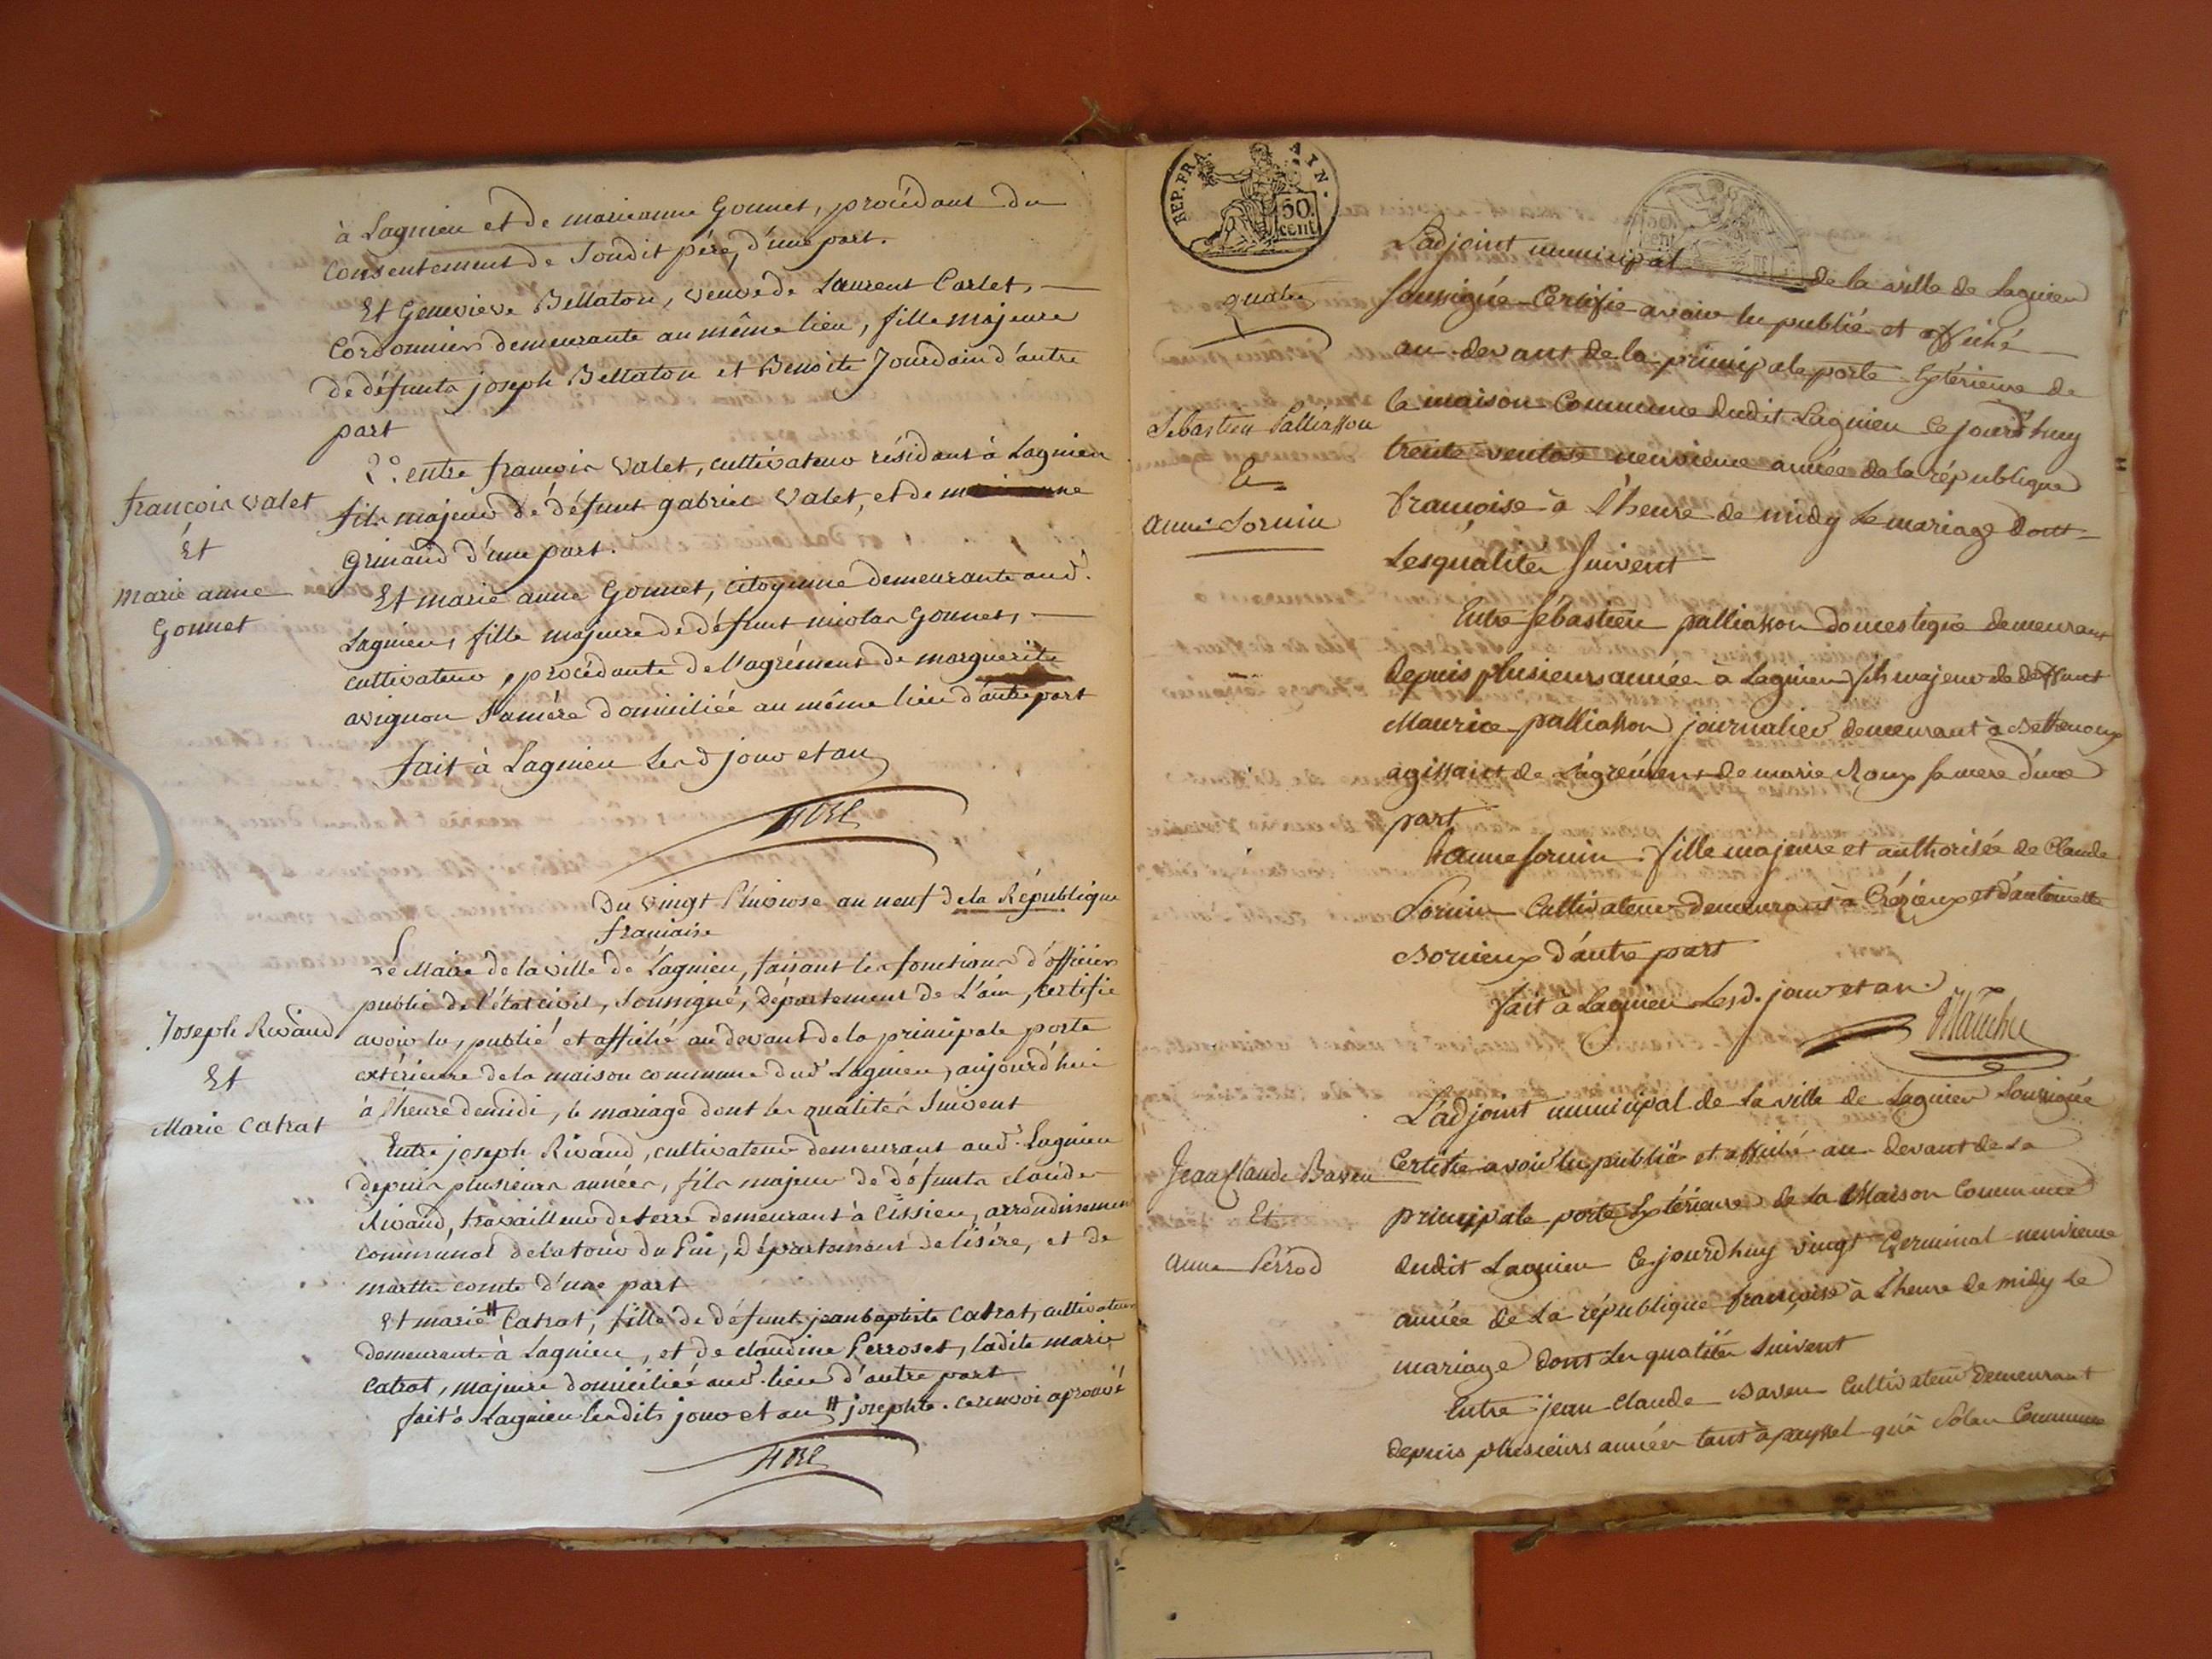 à Lagnieu et de marieanne Gonnet, procédant du
consentement de Sondit père, d'une part.
Et Genevieve Bellaton, veuve de Laurent Carlet,
Cordonnier demeurante au même lieu, fille majeure
de défunts joseph Bellaton et Benoite Jourdain d'autre
part
2.° entre françois Valet, cultivateur résidant à Lagnieu
françois valet
Et
marie anne
Gonnet
fils majeur de défunt gabriel Valet, et de
grinand d'une part.
Et marie anne Gonnet, citoyenne demeurante aud.
Lagnieu, fille majeure de défunt nicolas Gonnet,
cultivateur, procédante de l'agrément de marguerite
avignon Samère domiciliée au même lieu d'autre part
fait à Lagnieu lesd jour et an
Du vingt Pluviose an neuf de la République
française
Le Maire de la ville de Lagnieu, faisant les fonctions d'officier
public de l'état civil, Soussigné, Département de L'ain, Certifie
Joseph Rivaud
Et
Marie Catrat
avoir lu, publié et affiché au devant de la principale porte
extérieure de la maison commune dud Lagnieu, aujourd'hui
à l'heure de midi, le mariage dont les qualités Suivent
Entre joseph Rivaud, cultivateur demeurant aud. Lagnieu
depuis plusieurs années, fils majeur de défunts claude
Rivaud, travailleur de terre demeurant à Cissieu, arrondissement
communal de latour du Pin, Département de lisère, et de
marthe comte d'une part
Et marie # Catrat, fille de défunt jean baptiste Catrat, cultivateur
demeurante à Lagnieu, et de claudine Perroset, ladite marie
Catrat, majeure domiciliée aud. lieu d'autre part
fait à Lagnieu lesdits jour et an # josephte. ce renvoi aprouvé
REP. FRA. AIN.
50.
cent
quatre
Ladjoint municipal de la ville de Lagnieu
Soussigné Certifie avoir lu publié et affiché
au devant de la principale porte Extérieure de
la maison Commune dudit Lagnieu Ce jourd'huy
Sebastien Palliasson
Et
anne Sornin
trente ventose neuvieme année de la république
françoise à l'heure de midy Le mariage Dont
Les qualités Suivent
Entre Sébastien palliasson domestique demeurant
depuis plusieurs année à Lagnieu fils majeur de deffunt
Maurice palliasson journalier demeurant à
agissant de L'agrément de marie Roux Sa mere d'une
part
Et anne Sornin fille majeure et authorisée de Claude
Sornin Cultivateur demeurant à et d'antoinette
d'autre part
fait à Lagnieu Lesd. jour et an.
L'adjoint municipal de la ville de Lagnieu Soussigné
Jean Claude Baven
Et
anne Perrod
Certifie avoir lu publié et affiché au devant de La
principale porte Extérieure de La Maison Commune
dudit Lagnieu Ce jourdhuy vingt Germinal neuvieme
année de La république françoise à L'heure de midy Le
mariage Dont Les qualités Suivent
Entre jean Claude Baven Cultivateur Demeurant
depuis plusieurs années tant à peyssel qu'à Commune